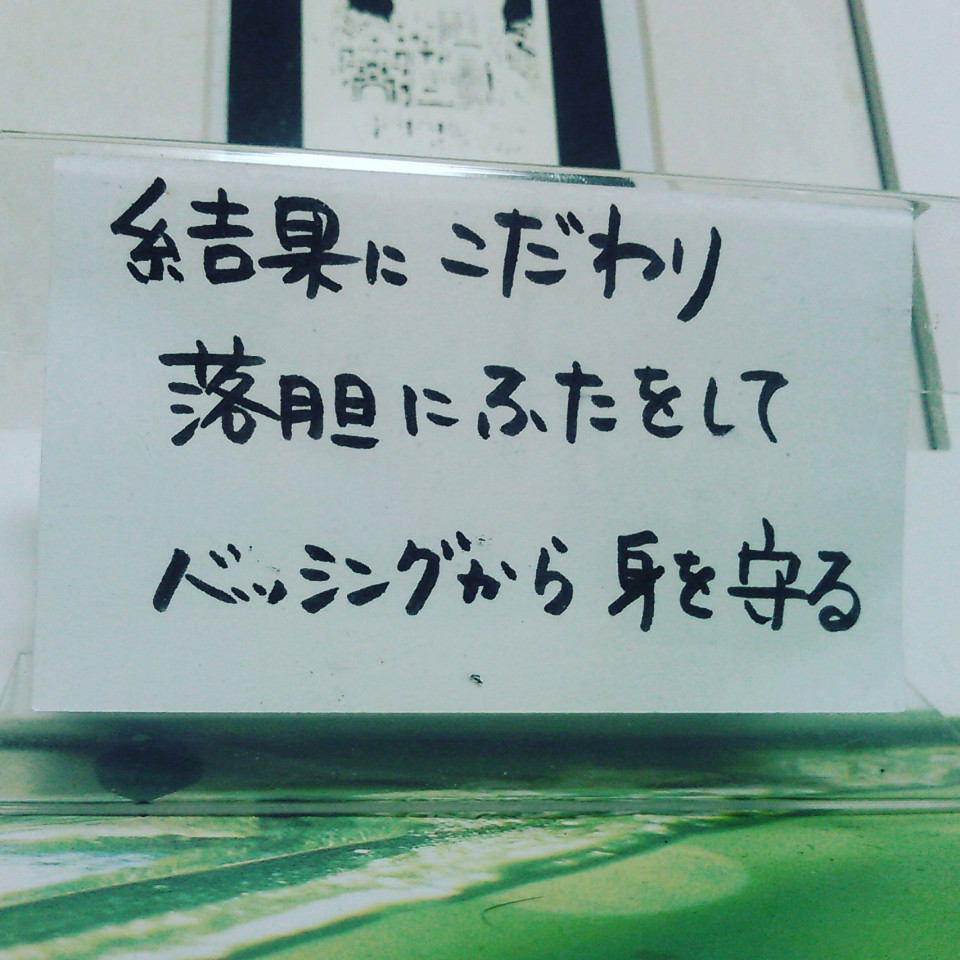 結果にこだわり
落胆にふたをして
バッシングから身を守る